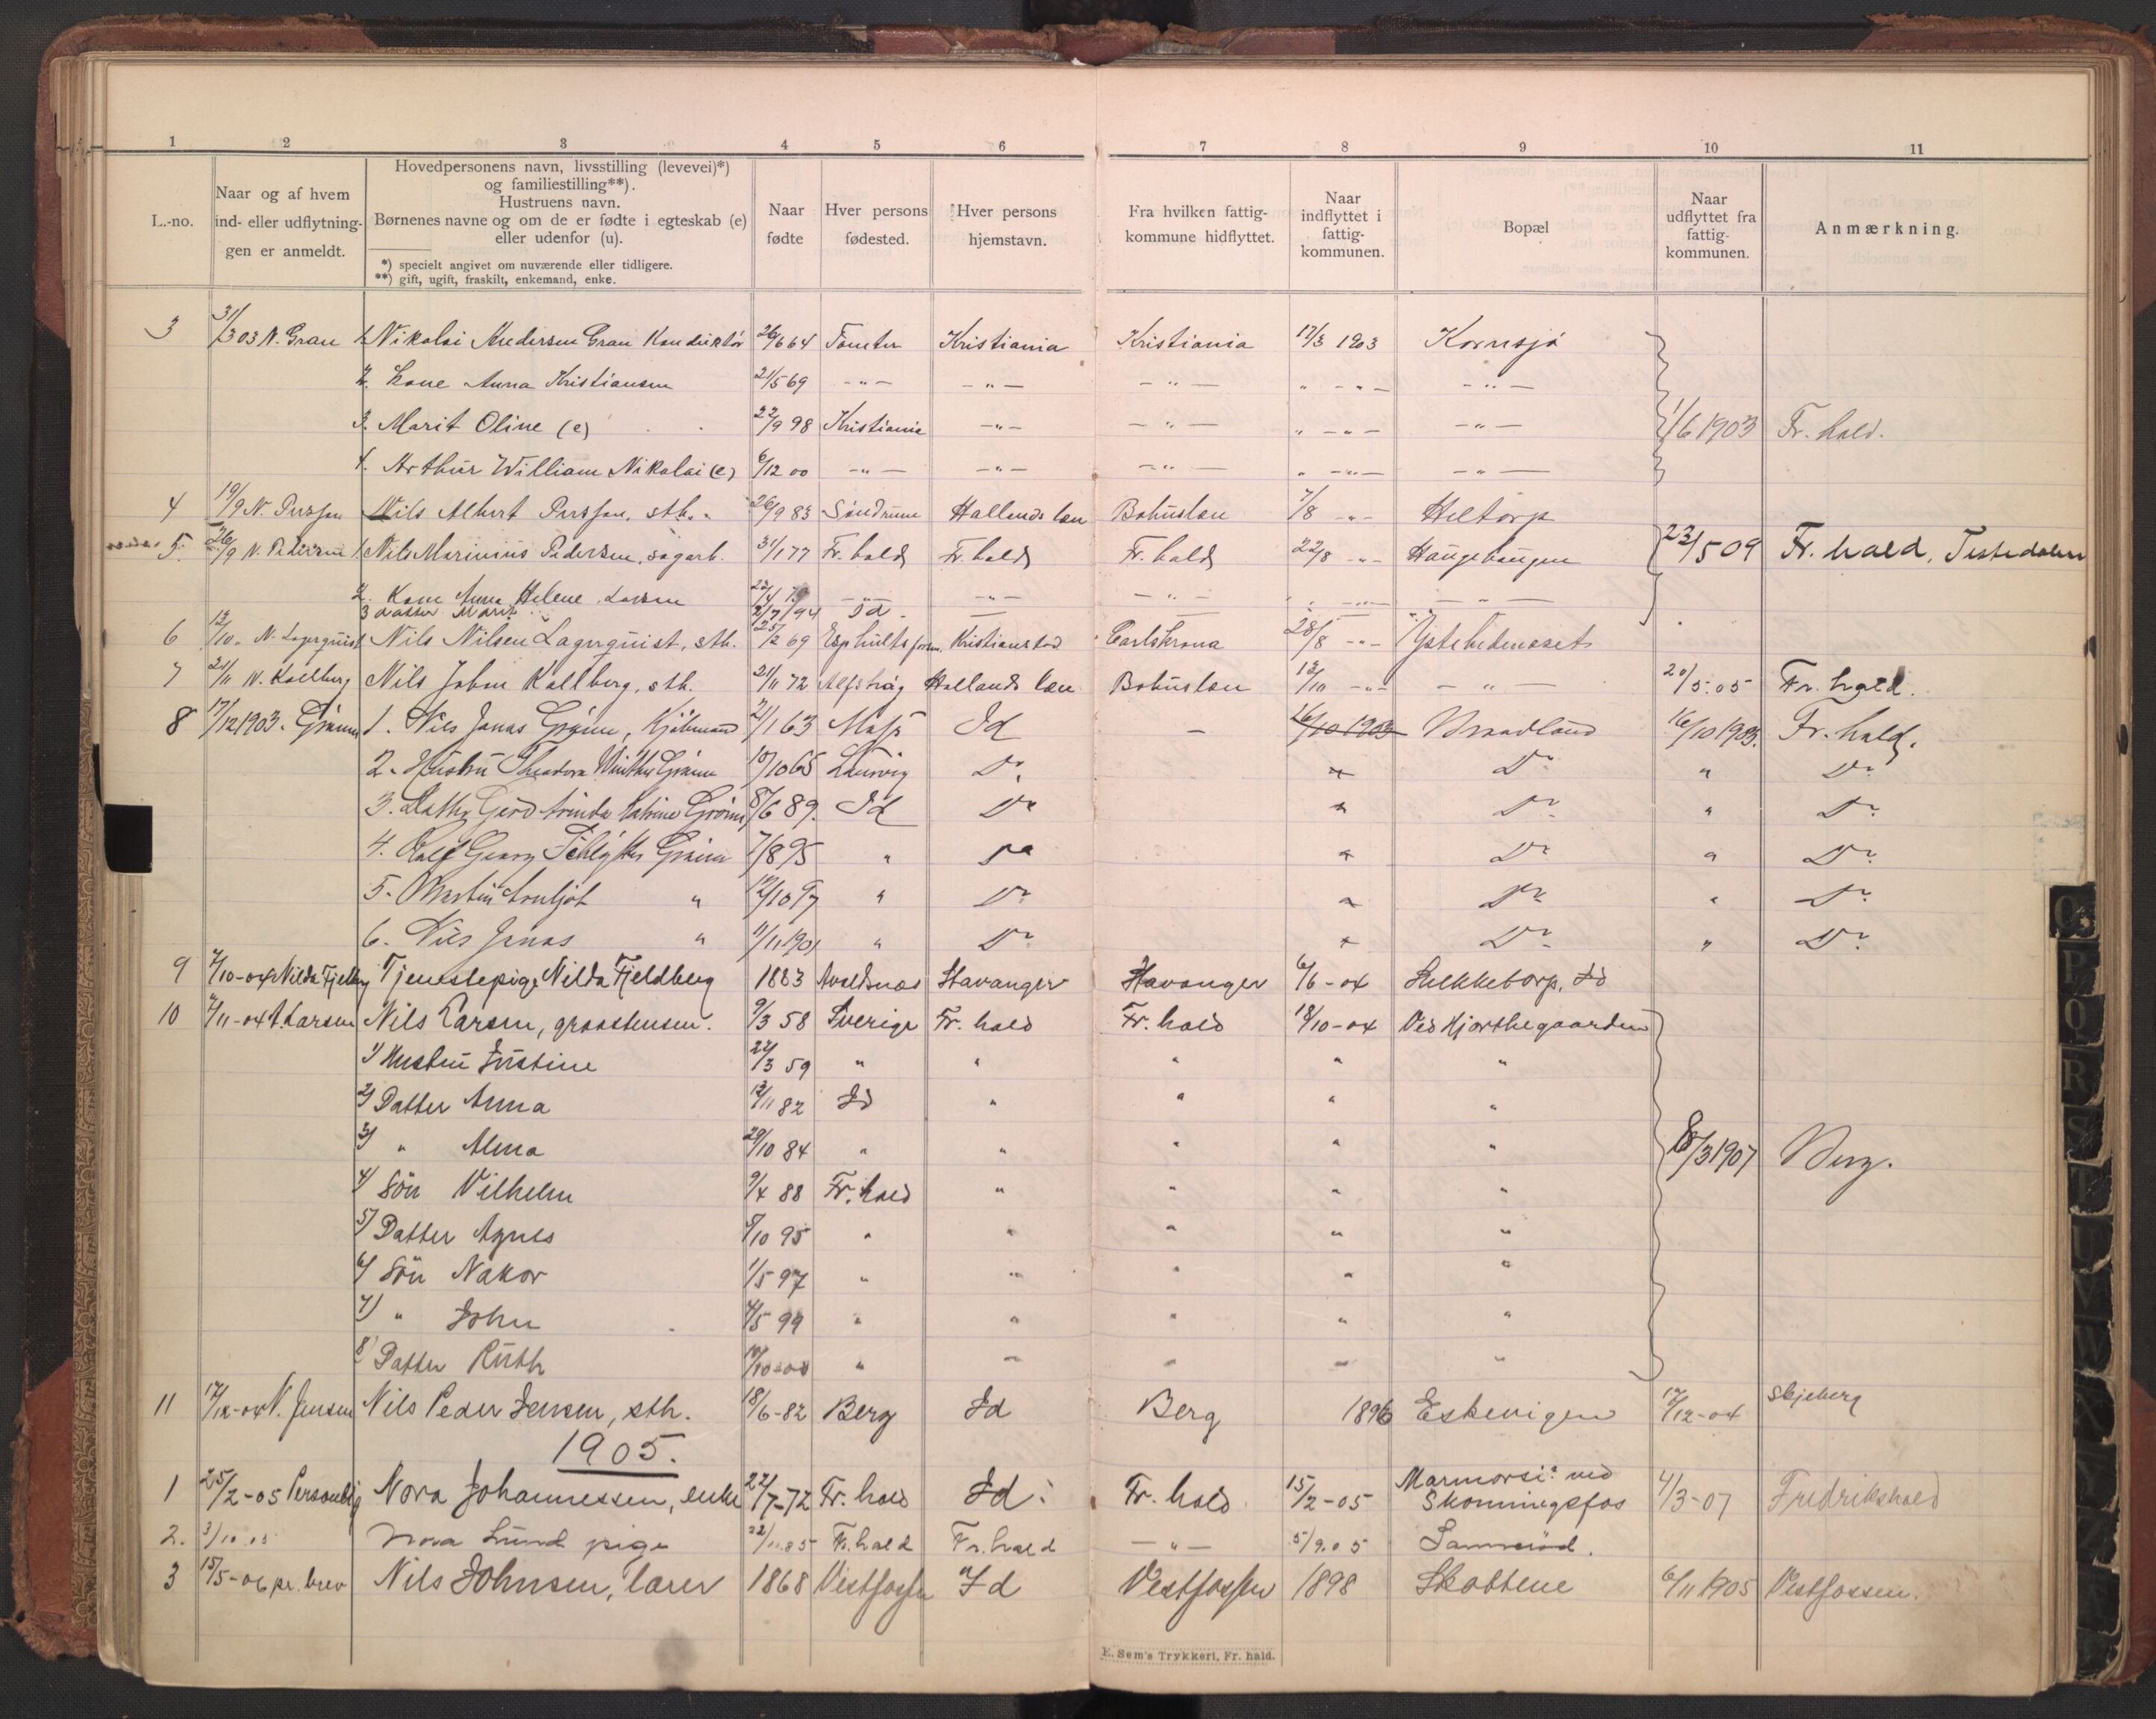 1 2 3 4 5 6 7 8 9 10 11
L.-no.
Naar og af hvem
ind- eller udflytnin-
gen er anmeldt.
Hovedpersonens navn, livsstilling (levevei)*)
og familiestilling**).
Hustruens navn.
Børnenes navne og om de er fødte i egteskab (e)
eller udenfor (u).
*) specielt angivet om nuværende eller tidligere.
**) gift, ugift, fraskilt, enkemand, enke.
Naar
fødte
Hver persons
fødested.
Hver persons
hjemstavn.
Fra hvilken fattig-
kommune hidflyttet.
Naar
indflyttet i
fattig-
kommunen.
Bopæl
Naar
udflyttet fra
fattig-
kommunen.
Anmærkning.
3 31/3 03 N. Gran 1. Nikolai Andersen Gran Konduktör 26/6 64 Tomter Kristiania Kristiania 17/3 1903 Kornsjö
2. Kone Anna Kristiansen 21/5 69 -"- -"- -"- " -"- -"-
3. Marit Oline (e) 22/9 98 Kristiania -"- -"- " -"- -"- 1/6 1903 Fr. hald.
4. Arthur William Nikolai (e) 6/12 00 -"- -"- -"- " -"- -"-
4 19/9 N. Persson Nils Albert Persson, sth. 26/9 83 Söndrum Hallands län Bohuslän 7/8 -"- Heltorp
5. 26/9 N. Pedersen 1. Nils Marinius Pedersen, sagarb. 31/1 77 Fr. hald Fr. hald Fr. hald 22/8 -"- Haugehaugen 23/5 09 Fr. hald, Tistedalen
2. Kone Anna Helene Larsen -"- -"- -"- -"- -"-
3 datter Marit 2/7 94 Id
6 12/10. N. Lagerquist Nils Nilsen Lagerquist, sth. 25/2 69 Esphults Kristianstad Carlskrona 28/8 -"- Ystehedmoset
7 21/11 N. Kallberg Nils Johan Kallberg, sth. 21/11 72 Alfshög Hallands län Bohuslän 12/10 -"- -"- 20/5.05 Fr. hald.
8 17/12 1903. Grimm 1. Nils Jonas Grimm, Kjöbmand 2/1 63 Moss Id - 16/10 1903 Braadland 16/10 1903. Fr. hald.
2. Hustru Theodora Winther Grimm 15/10 65 Laurvig Do " Do " Do
3. Datter Gerd Katrine Grimm 8/6 89. Id Do " Do " Do
4. Georg Grimm 7/8 95 " Do " Do " Do
5. " 12/10 97 " Do " Do " Do
6. Nils Jonas " 11/11 1901 " Do " Do " Do
9 7/10-04 Nilda Fjelberg Tjenestepige Nilda Fjeldberg 1883 Avaldsnes Stavanger Stavanger 6/6-04 Lukkeborp, Id
10 7/11-04 N. Larsen Nils Larsen, graastensm. 9/3 58 Sverige Fr. hald Fr. hald 18/10-04 Ved Hjorthegaarden
1) Hustru Justine 22/3 59 " " " " "
2) Datter Anna 12/11 82 Id " " " "
3) " Alma 29/10 84 " " " " " 8/3 1907 Berg.
4) Sön Vilhelm 9/4 88 Fr. hald " " " "
5) Datter Agnes 5/10 95 " " " " "
6) Sön Nakor 1/5 97 " " " " "
7) " John 4/5 99 " " " " "
8) Datter Ruth 10/10-00 " " " " "
11 17/12-04 N. Jensen Nils Peder Jensen, sth. 18/6-82 Berg Id Berg 1896 Eskevigen 17/12-04 Skjeberg
1905.
1 25/2-05 Personlig Nora Johannessen, enke 22/7-72 Fr. hald Id: Fr. hald 15/2-05 Marmorsi: ved
Skonningsfos 4/3-07 Fredrikshald
2. 3/10.05 Nora Lund pige 22/11.85 Fr. hald Fr. hald -"- 5/9.05 Sammeröd.
3 15/5-06 pr. brev Nils Johnsen, lærer 1868 Vestfossen Id Vestfossen 1898 Skottene 6/11 1905 Vestfossen.
E. Sem's Trykkeri, Fr. hald.
O P Q R S T U V W